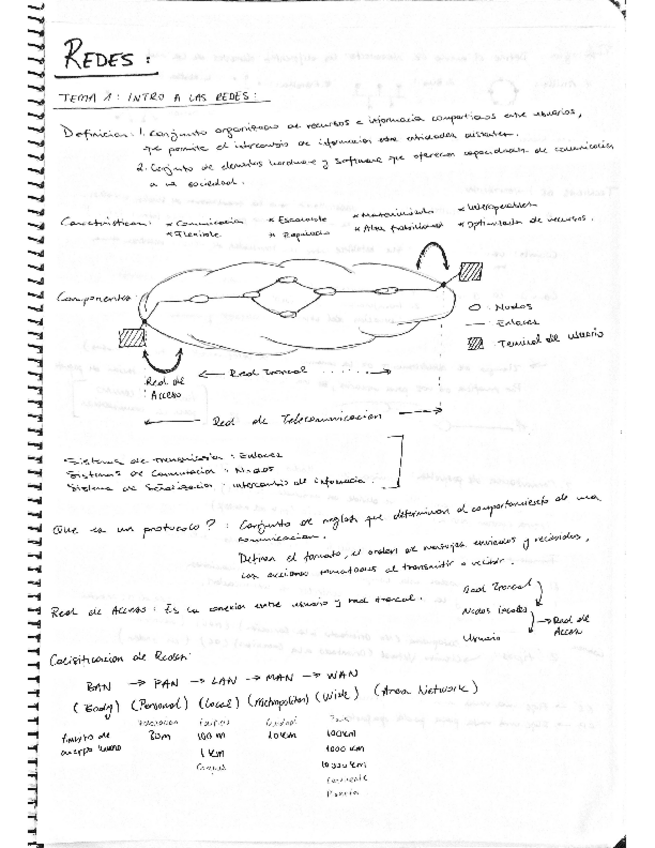 REDES:
TEMA 1: INTRO A LAS REDES:
Definicion: 1. Conjunto organizado de recursos e informacion compartidos entre usuarios,
que permite el intercambio de informacion entre entidades distantes.
2. Conjunto de elementos hardware y software que ofrecen capacidades de comunicación
a una sociedad.
Caracteristicas: * Comunicacion * Escalable * Mantenimiento * Interoperables
* Flexible * Rapidez * Alta fiabilidad * Optimizador de recursos.
Componentes:
O : Nodos
— : Enlaces
: Terminal de usuario
Red de Acceso
Red Troncal
Red de Telecomunicacion
Sistemas de transmision : Enlaces
Sistemas de Conmutacion : Nodos
Sistema de Señalizacion : intercambio de informacion.
Que es un protocolo? : Conjunto de reglas que determinan el comportamiento de una
comunicacion.
Definen el formato, el orden de mensajes enviados y recibidos,
las acciones al transmitir o recibir.
Red de Acceso : Es la conexion entre usuario y red troncal.
Red Troncal
Nodos locales
Usuario
→ Red de Acceso
Clasificacion de Redes:
BAN → PAN → LAN → MAN → WAN
(Body) (Personal) (Local) (Metropolitan) (Wide) (Area Network)
Ciudad
cuerpo humano
100 m 10 km 100 km
1 km 1000 km
10000 km
Campus